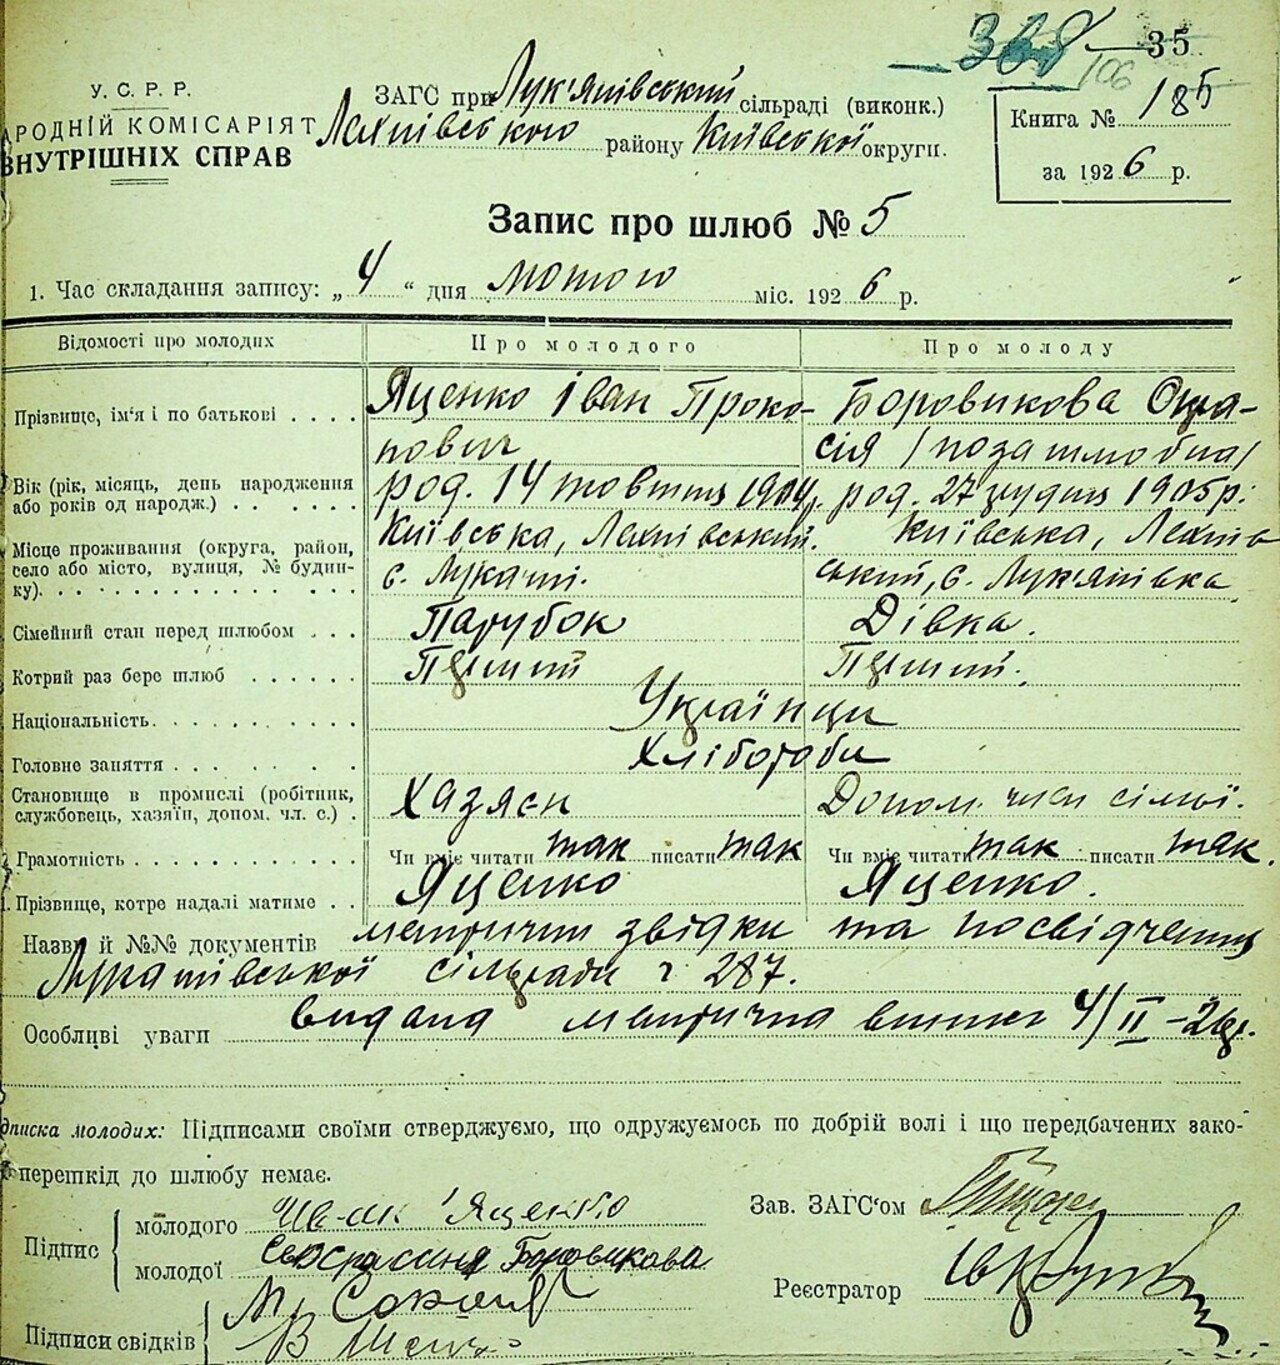 35
106
У. С. Р. Р.
АРОДНІЙ КОМІСАРІЯТ
ВНУТРІШНІХ СПРАВ
ЗАГС при Лук'янівський сільраді (виконк.)
району Київської округи.
Книга № 185
за 1926 р.
Запис про шлюб № 5
1. Час складання запису: „4“ дня лютого міс. 1926 р.
Відомості про молодих Про молодого Про молоду
Прізвище, ім'я і по батькові . . . . Яценко Іван Проко- Боровикова
пович сія /позашлюбна/
Вік (рік, місяць, день народження або років од народж.) . . . . . . . род. 14 жовтня 1904р. род. 27 грудня 1905 р.
Місце проживання (округа, район, село або місто, вулиця, № будинку). Київська, с. Київська, ський, с. Лук'янівка
Сімейний стан перед шлюбом . . . Парубок Дівка.
Котрий раз бере шлюб . . . . . . Перший Перший.
Національність. . . . . . . . . . . Українци
Головне заняття . . . . . . . . Хлібороби
Становище в промислі (робітник, службовець, хазяїн, допом. чл. с.) . Хазяєн Допом. член сімьї.
Грамотність . . . . . . . . . . . . Чи вміє читати так писати так Чи вміє читати так писати так.
Прізвище, котре надалі матиме . . Яценко Яценко.
Назви й №№ документів метричні звідки та посвідчення
сільради ч 287.
Особливі уваги видана метрична 4/II-26р.
дписка молодих: Підписами своїми стверджуємо, що одружуємось по добрій волі і що передбачених зако-
перешкід до шлюбу немає.
Підпис
молодого Яценко
молодої Боровикова
Зав. ЗАГС'ом
Реєстратор
Підписи свідків